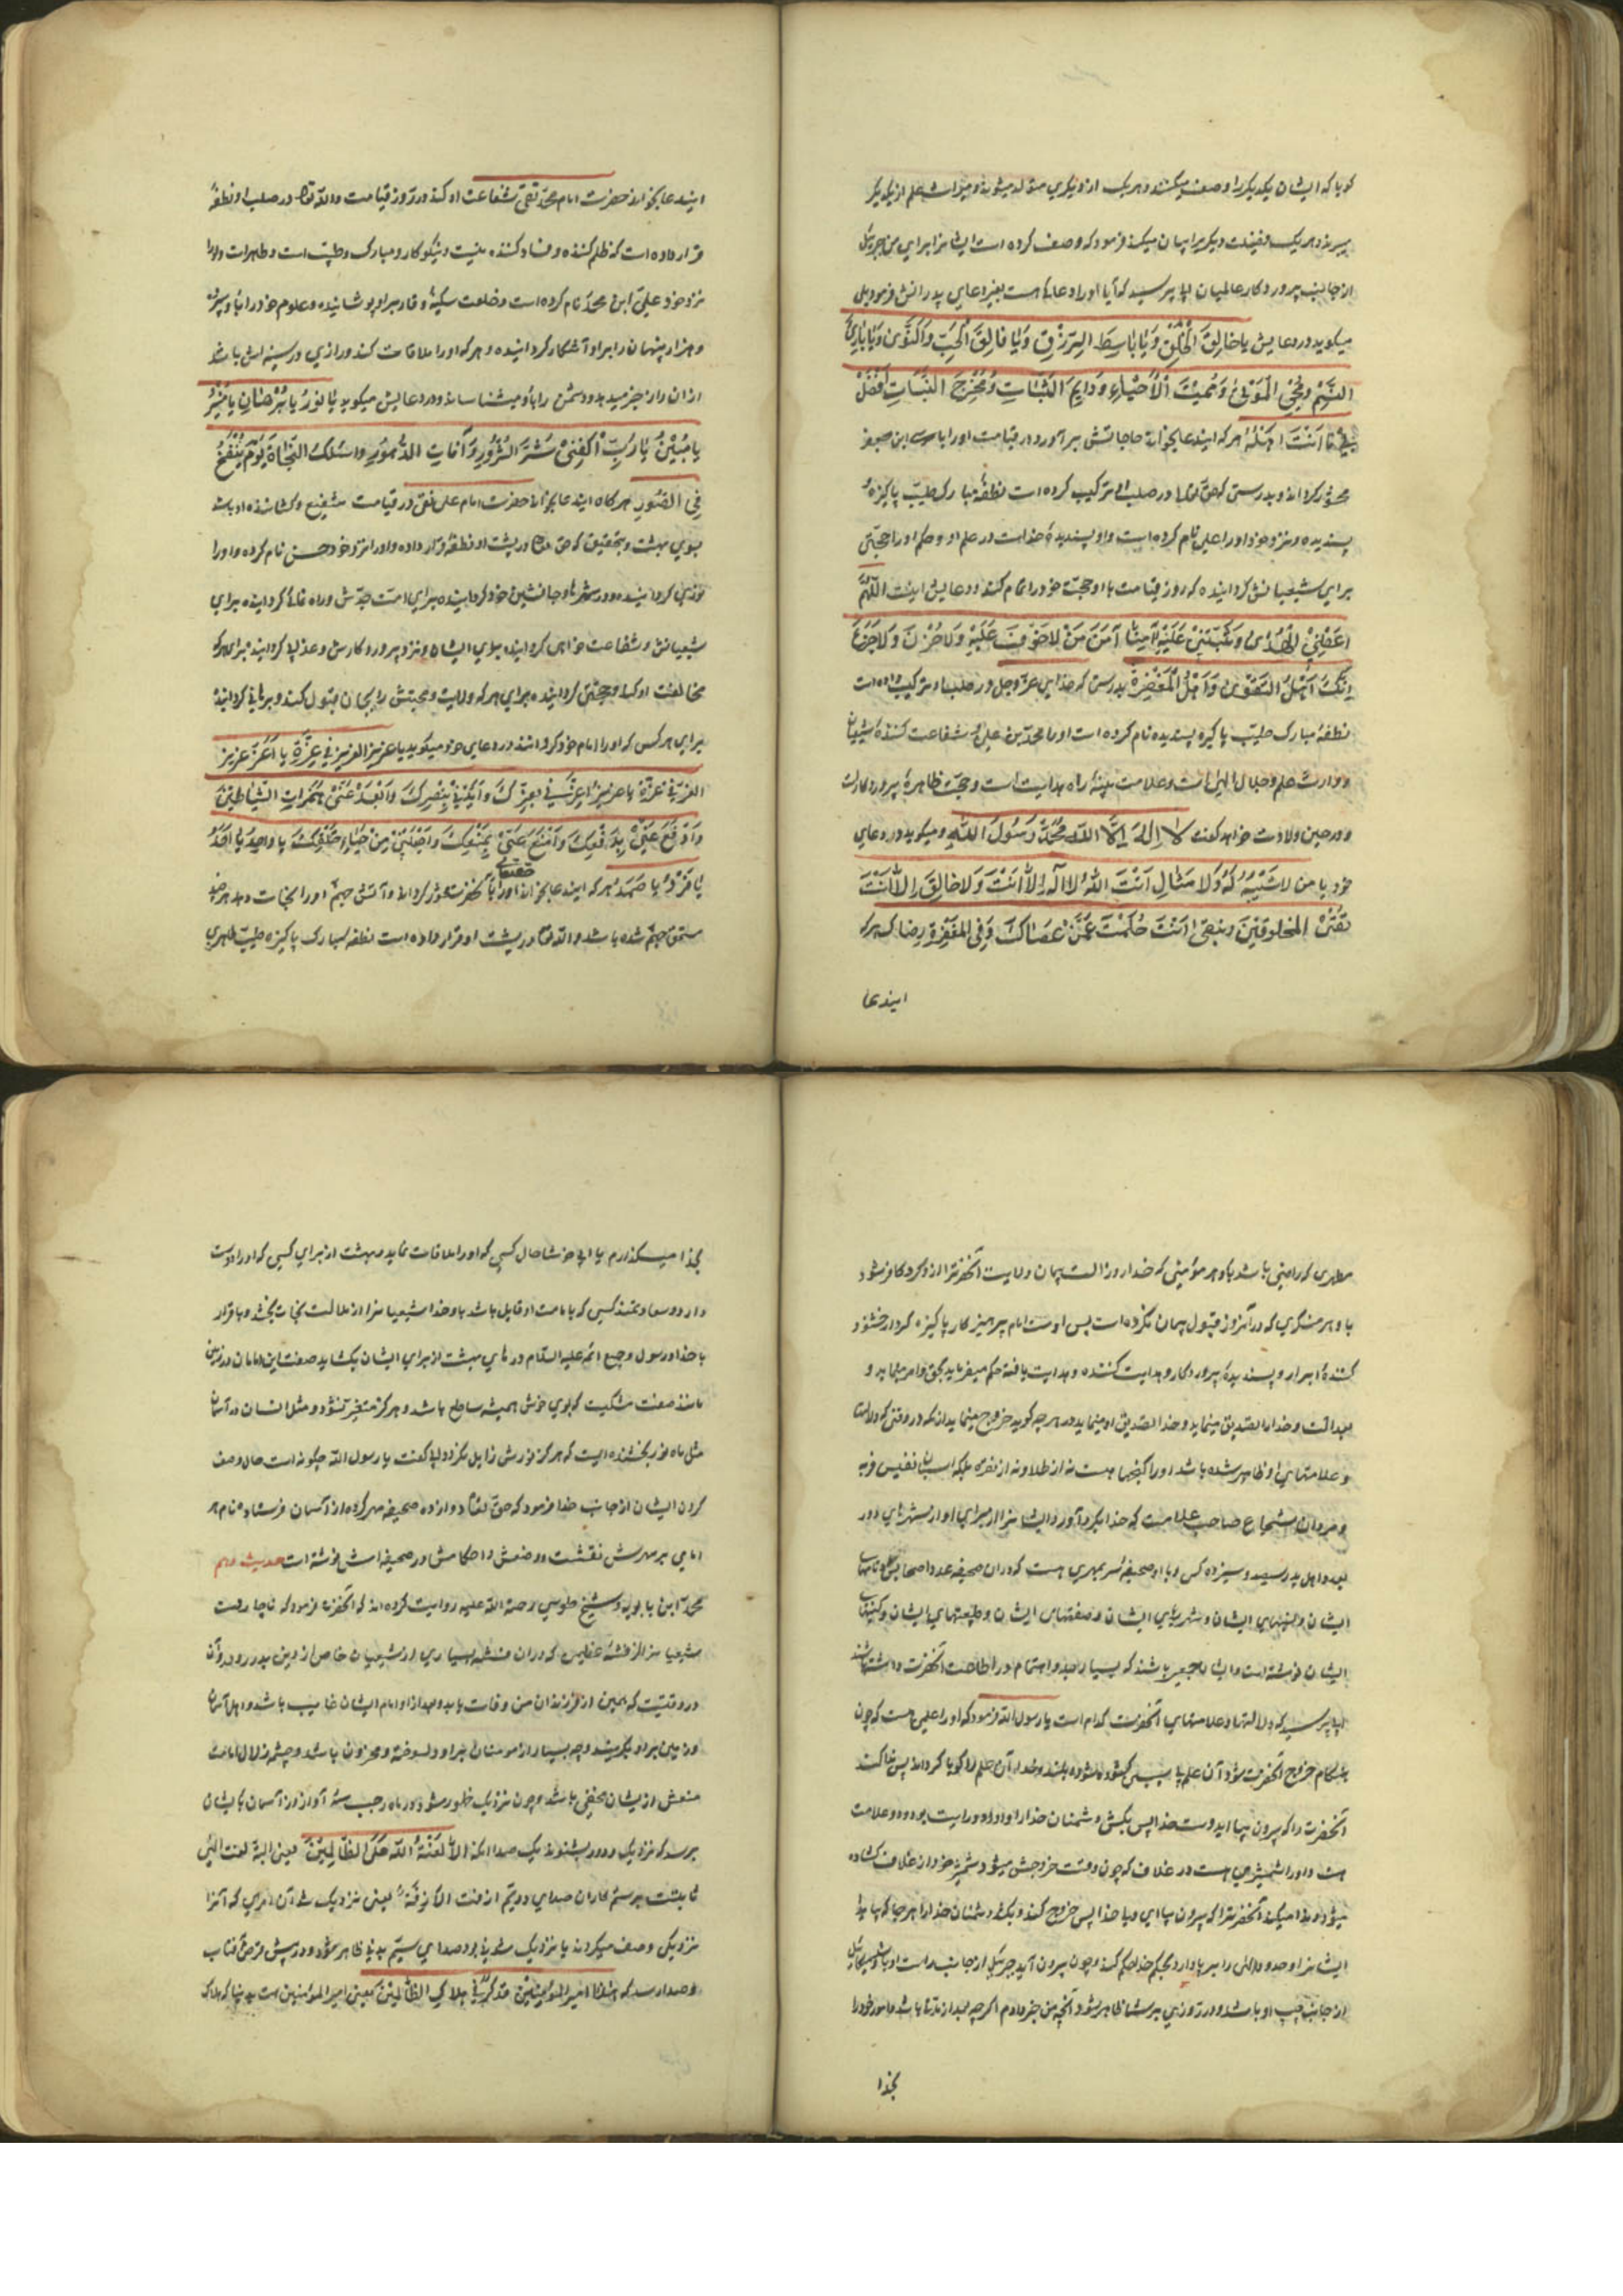 کویا که ایشان یکدیکر را وصف میکنند و هر یک از دیکری متولد میشوند و میراث علم از یکدیکر
میبرند و هر یک فضیلت دیکریرا بیان میکند فرمود که وصف کرده است ایشانرا برای من جبرئیل
از جانب پروردکار عالمیان ابی پرسید که آیا او را دعایی هست بغیر دعای پدرانش فرمود بلی
میکوید در دعایش یا خالِقَ الْخَلْقِ وَیا باسِطَ الرِّزْقِ وَیا فالِقَ الْحَبِّ وَالنَّوی وَیا بارِئَ
النَّسَمِ وَمُحْیِیَ الْمَوْتی وَمُمیتَ الْاَحْیاءِ وَدایِمَ الثَّباتِ وَمُخْرِجَ النَّباتِ اِفْعَلْ
بی ما اَنْتَ اَهْلُهُ هر که ایندعا بخواند حاجاتش برآورد و در قیامت او را با موسی ابن جعفر
محشور کرداند و بدرستی که حق تعالی در صلب او ترکیب کرده است نطفهٔ مبارک طیّب پاکیزهٔ
پسندیده و نزد خود او را علی نام کرده است و او پسندیدهٔ خداست در علم او و حکم او را حجّتی
برای شیعیانش کردانیده که روز قیامت با او حجّت خود را تمام کند و دعایش اینست اللّهُمَّ
اَعْطِنِیَ الْهُدی وَثَبِّتْنی عَلَیْهِ آمِنًا اَمْنَ مَنْ لا خَوْفَ عَلَیْهِ وَلا حُزْنَ وَلا جَزَعَ
اِنَّکَ اَهْلُ التَّقْوی وَاَهْلُ الْمَغْفِرَةِ بدرستی که خدای عزّ وجل در صلب او ترکیب داده است
نطفهٔ مبارک طیّب پاکیزه پسندیده نام کرده است او را محمّد بن علی شفاعت کنندهٔ شیعیان
و وارث علم و حلال الهی است و علامت بینهٔ راه هدایت است و حجّت ظاهرهٔ پروردکار است
و در حین ولادت خواهد کفت لا اِلهَ اِلَّا اللّه مُحَمَّدٌ رَسُولُ اللّهِ و میکوید در دعای
خود یا من لا شَبیهَ لَهُ وَلا مِثالَ اَنْتَ اللّهُ لا اله اِلّا اَنْتَ وَلا خالِقَ اِلّا اَنْتَ
تُفْنِی المخلوقینَ وتبقی اَنْتَ حَلُمْتَ عَمَّنْ عَصاکَ وَفِی الْمَغْفِرَةِ رضاک هر که
ایندعا
ایندعا بخواند حضرت امام محمّد تقی شفاعت او کند در روز قیامت و اللّه تعالی در صلب او نطفهٔ
قرار داده است که ظلم کننده و فساد کننده نیست و نیکو کار و مبارک و طیّب است و طاهر است و او را
نزد خود علی ابن محمّد نام کرده است و خلعت سکینه و وقار بر او پوشانیده و علوم خود را باو سپرده
و هر راز پنهان را بر او آشکار کردانیده و هر که او را ملاقات کند و رازی در سینه اش باشد
از آن راز خبر میدهد و دشمن را باو میشناساند و در دعایش میکوید یا نُورُ یا بُرْهانُ یا مُنیرُ
یا مُبینُ یا رَبِّ اکْفِنی شَرَّ الشُّرُورِ وَآفاتِ الدُّهُورِ واَسْئَلُکَ النَّجاةَ یَوْمَ یُنْفَخُ
فِی الصُّورِ هر کاه ایندعا بخواند حضرت امام علی نقی در قیامت شفیع و کشاننده او باشد
بسوی بهشت و بتحقیق که حق تعالی در پشت او نطفهٔ قرار داده و او را نزد خود حسن نام کرده و او را
نوری کردانیده در شهرها و جانشین خود کردانیده برای امّت جدّش و راه نمای کردانیده برای
شیعیانش و شفاعت خواهی کردانیده برای ایشان نزد پروردکارش و عذابی کردانیده برای هر که
مخالفت او کند و حجّتی کردانیده برای هر که ولایت و محبتش را بجان قبول کند و برهانی کردانیده
برای هر کس که او را امام خود کرداند در دعای خود میکوید یا عزیز العز یز فی عِزِّهِ یا اَعَزَّ عزیز
العزّ فی عزّه یا عزیز اَعِزَّنی بِعِزِّکَ وَاَیِّدْنی بِنَصْرِکَ وَاَبْعِدْ عَنّی هَمَزاتِ الشَّیاطینِ
وَادْفَعْ عَنّی بِدَفْعِکَ وَامْنَعْ عَنّی بِمَنْعِکَ وَاجْعَلْنی مِنْ خِیارِ خَلْقِکَ یا واحِدُ یا اَحَدُ
یا فَرْدُ یا صَمَدُ هر که ایندعا بخواند او را حقتعالی با آنحضرت محشور کرداند و از آتش جهنّم او را نجات دهد هر چند
مستحق جهنّم شده باشد و اللّه تعالی در پشت او قرار داده است نطفه مبارک پاکیزه طیّب طاهری
مطهری که راضی باشد باو هر مؤمنی که خدا در روز الست پیمان ولایت آنحضرترا از او کرفته و کافر شود
باو هر منکری که در آنروز قبول پیمان نکرده است پس اوست امام پرهیزکار پاکیزه کردار خشنود
کنندهٔ ابرار و پسندیدهٔ پروردکار و هدایت کننده و هدایت یافته حکم میفرماید بحق و امر مینماید و
بعدالت و خدا را تصدیق مینماید و خدا تصدیق او مینماید در هر چه کوید خروج مینماید از مکه در وقتی که دلالتها
و علامتهای او ظاهر شده باشد او را کنجها هست نه از طلا و نه از نقره بلکه اسبان نفیس فربه
و مردان شجاع صاحب علامت که خدا بکرد آورد ایشانرا از برای او از شهرهای دور
بعدد اهل بدر سیصد و سیزده کس و با او صحیفهٔ سر بمهری هست که در آن صحیفه عدد اصحابش و نامهای
ایشان و نسبهای ایشان و شهرهای ایشان و صفتهای ایشان و طبیعتهای ایشان و کنیتهای
ایشان نوشته است و ایشان جمعی باشند که بسیار جد و اهتمام در اطاعت آنحضرت داشته باشند
ابی پرسید که دلالتها و علامتهای آنحضرت کدام است یا رسول اللّه فرمود که او را علمی هست که چون
هنکام خروج آنحضرت شود آن علم پاسبی کشوده شود و بلند و خدا آن علم را کویا کرداند پس ندا کند
آنحضرت را که بیرون بیا ای دوست خدا پس بکش دشمنان خدا را و او را دو رایت بود و دو علامت
هست و او را شمشیری هست در غلاف که چون وقت خروجش میشود شمشیر خود از غلاف کشاده
میشود و ندا میکند آنحضرترا که بیرون بیا ای ولی خدا پس خروج کند و بکشد دشمنان خدا را هر جا که بیابد
ایشانرا و حدود الهی را بر پا دارد و بحکم خدا حکم کند و چون بیرون آید جبرئیل از جانب راست او باشد و میکائیل
از جانب چپ او باشد و در روزی بر شما ظاهر شود آنچه من خبر دادم اکر چه بعد از مدّتها باشد و امور خود را
بخدا
بخدا میکذارم یا ابی خوشا حال کسی که او را ملاقات نماید و بهشت از برای کسی که او را دوست
دارد و سعادتمند کسی که بامامت او قایل باشد باو خدا شیعیانرا از هلاکت نجات بخشد و باقرار
بخدا و رسول و جمیع ائمه علیه السّلام درهای بهشت از برای ایشان بکشاید صفت این امامان در زمین
مانند صفت مشکیست که بوی خوش همیشه ساطع باشد و هرکز متغیّر نشود و مثل ایشان در آسمان
مثل ماه نور بخشنده ایست که هرکز نورش زایل نکردد ابی کفت یا رسول اللّه چکونه است حال وصف
کردن ایشان از جانب خدا فرمود که حق تعالی دوازده صحیفه مهر کرده از آسمان فرستاد نام هر
امامی بر مهرش نقشست و وصفش و احکامش در صحیفه اش نوشته است حدیث دهم
محمّد ابن بابویه و شیخ طوسی رحمة اللّه علیه روایت کرده اند که آنحضرت فرمود که ناچار است
شیعیانرا از فتنهٔ عظیمی که در آن فتنه بسیاری از شیعیان خاص از دین بدر روند و آن
در وقتیست که پنجمین از فرزندان من وفات یابد و بعد از او امام ایشان غایب باشد و اهل آسمان
و زمین بر او بکریند و چه بسیار از مومنان بر او دلسوخته و محزون باشد و چشمه زلال امامت
منعش از ایشان مخفی باشد و چون نزدیک ظهور شود در ماه رجب سه آواز از آسمان بایشان
برسد که نزدیک و دور بشنوند یک صدا اینکه اَلا لَعْنَةُ اللّه عَلَی الظّالِمینَ یعنی البتّه لعنت الهی
ثابتست بر ستمکاران صدای دویّم ازفت الازفَةُ یعنی نزدیک شد آن امری که آنرا
نزدیکی وصف میکردند یا نزدیک شدند و صدای سیّم بدنی ظاهر شود در پیش قرص آفتاب
و صدا رسد که هذا امیرالمؤمِنینَ قد کَرَّ فی هلاکِ الظّالِمینَ یعنی امیرالمؤمنین است بدنیا که هلاک